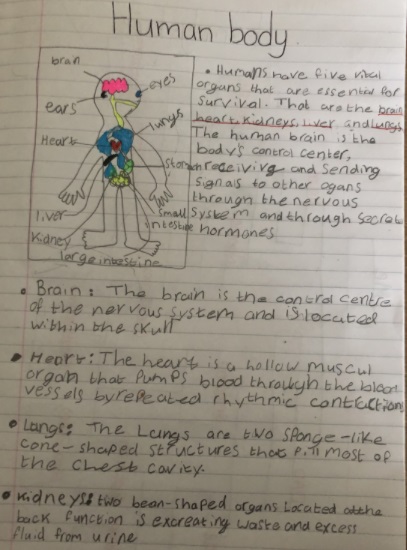 Human body
brain
eyes
ears
lungs
Heart
stomach
liver
small
intestine
Kidney
large intestine
• Humans have five vital
organs that are essential for
survival. That are the brain
heart, Kidneys, liver and lungs
The human brain is the
body's control center,
receiving and sending
signals to other ogans
through the nervous
system and through secret
hormones
• Brain: The brain is the control centre
of the nervous system and is located
within the skull
• Heart: The heart is a hollow muscul
organ that pumps blood through the blood
vessels by repeated rhythmic contractions
• Lungs: The Lungs are two sponge-like
cone-shaped structures that fill most of
the chest cavity.
• Kidneys: two bean-shaped organs located at the
back function is excreating waste and excess
fluid from urine